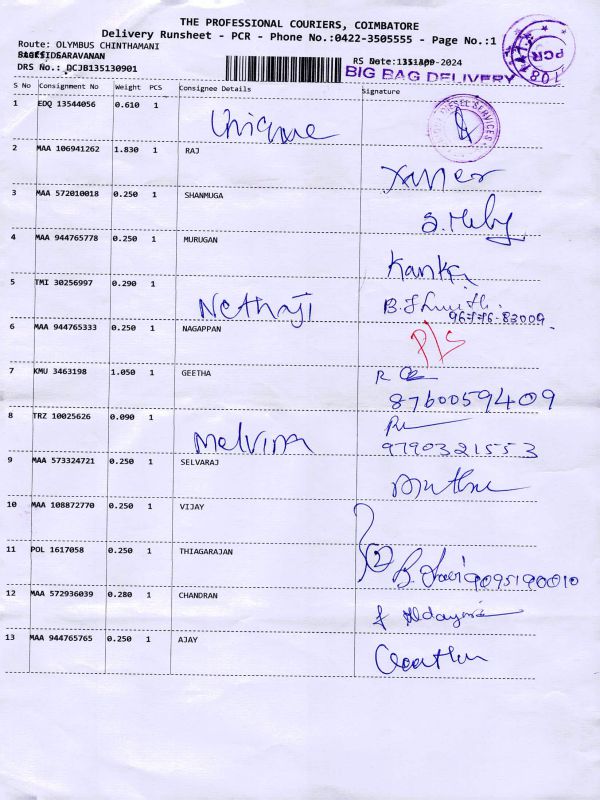 THE PROFESSIONAL COURIERS, COIMBATORE
Delivery Runsheet - PCR - Phone No.:0422-3505555 - Page No.:1
Route: OLYMBUS CHINTHAMANI
DRS No.: DCJB135130901
BIG BAG DELIVERY
PCR
S No Consignment No Weight PCS Consignee Details Signature
1 EDQ 13544056 0.610 1 Unique
2 MAA 106941262 1.830 1 RAJ Xavier
3 MAA 572010018 0.250 1 SHANMUGA
4 MAA 944765778 0.250 1 MURUGAN
5 TMI 30256997 0.290 1 Nethaji
96776-83009
6 MAA 944765333 0.250 1 NAGAPPAN P/S
7 KMU 3463198 1.050 1 GEETHA
87600594409
8 TRZ 10025626 0.090 1 Melvina
9790321553
9 MAA 573324721 0.250 1 SELVARAJ
10 MAA 108872770 0.250 1 VIJAY
11 POL 1617058 0.250 1 THIAGARAJAN 2 9095190010
12 MAA 572936039 0.280 1 CHANDRAN
13 MAA 944765765 0.250 1 AJAY